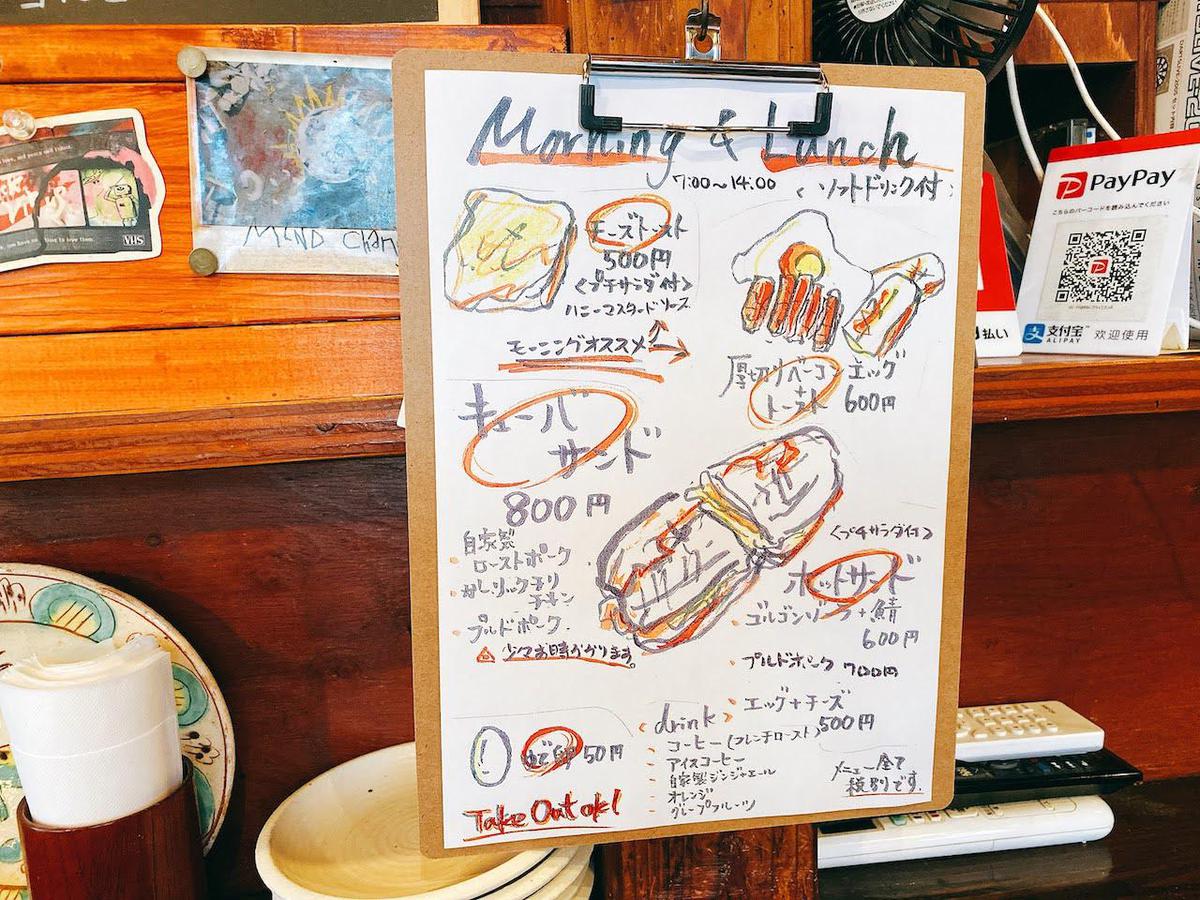 Morning & Lunch
7:00〜14:00
< ソフトドリンク付 >
モーストースト
500円
<プチサラダ付>
ハニーマスタードソース
モーニングオススメ
厚切りベーコン+エッグ
+
トースト 600円
キューバ
サンド
800円
自家製
・ローストポーク
・ガーリックチリ
チキン
・プルドポーク.
少々お時間かかります。
<プチサラダ付>
ホットサンド
・ゴルゴンゾーラ+鯖
600円
・プルドポーク 700円
・エッグ+チーズ
500円
ゆで卵 50円
Take Out ok!
<drink>
・コーヒー(フレンチロースト)
・アイスコーヒー
・自家製ジンジャエール
・オレンジ
・グレープフルーツ
メニュー全て
税別です.
MIND CHAN
VHS
PayPay
こちらのバーコードを読み込んでください
支付宝
ALIPAY
欢迎使用
払い